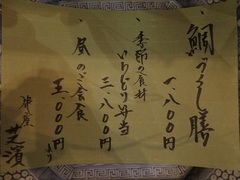 ・鯛めうし膳
一、八〇〇円
・季節の食材
いろどり弁当
三、八〇〇円
・昼のご会食
五、〇〇〇円より
芝濱